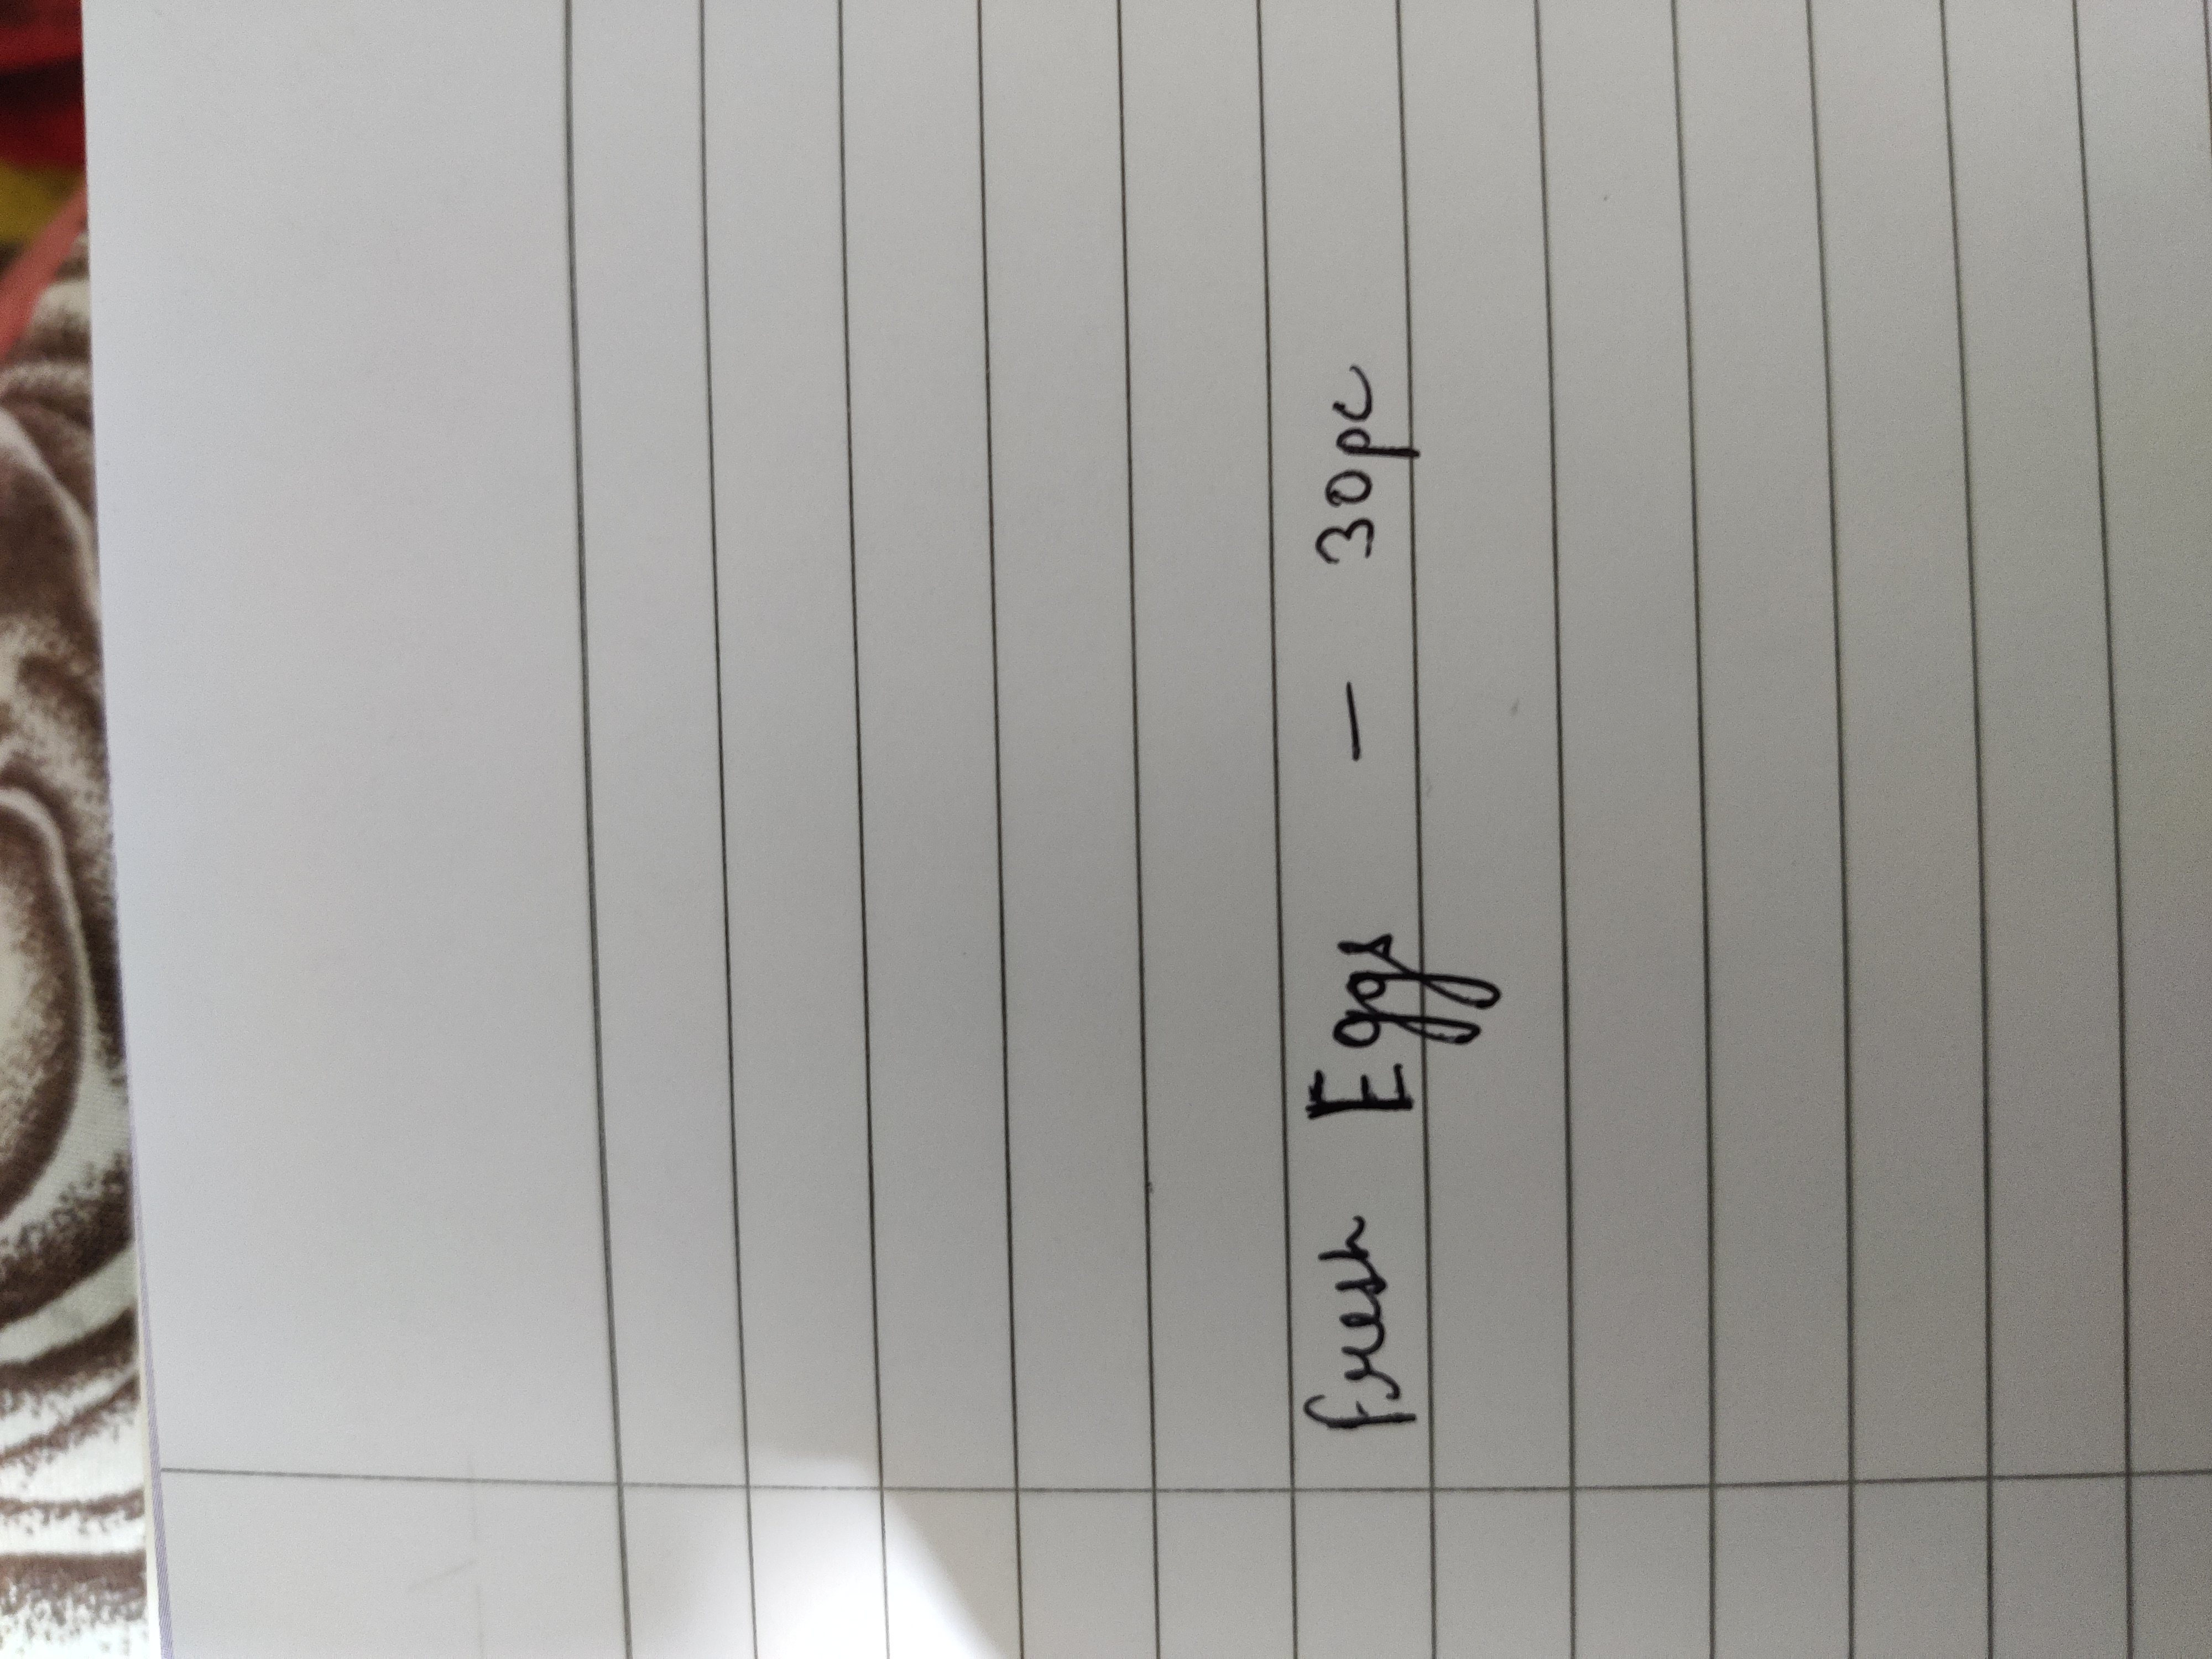 fresh Eggs - 30pc